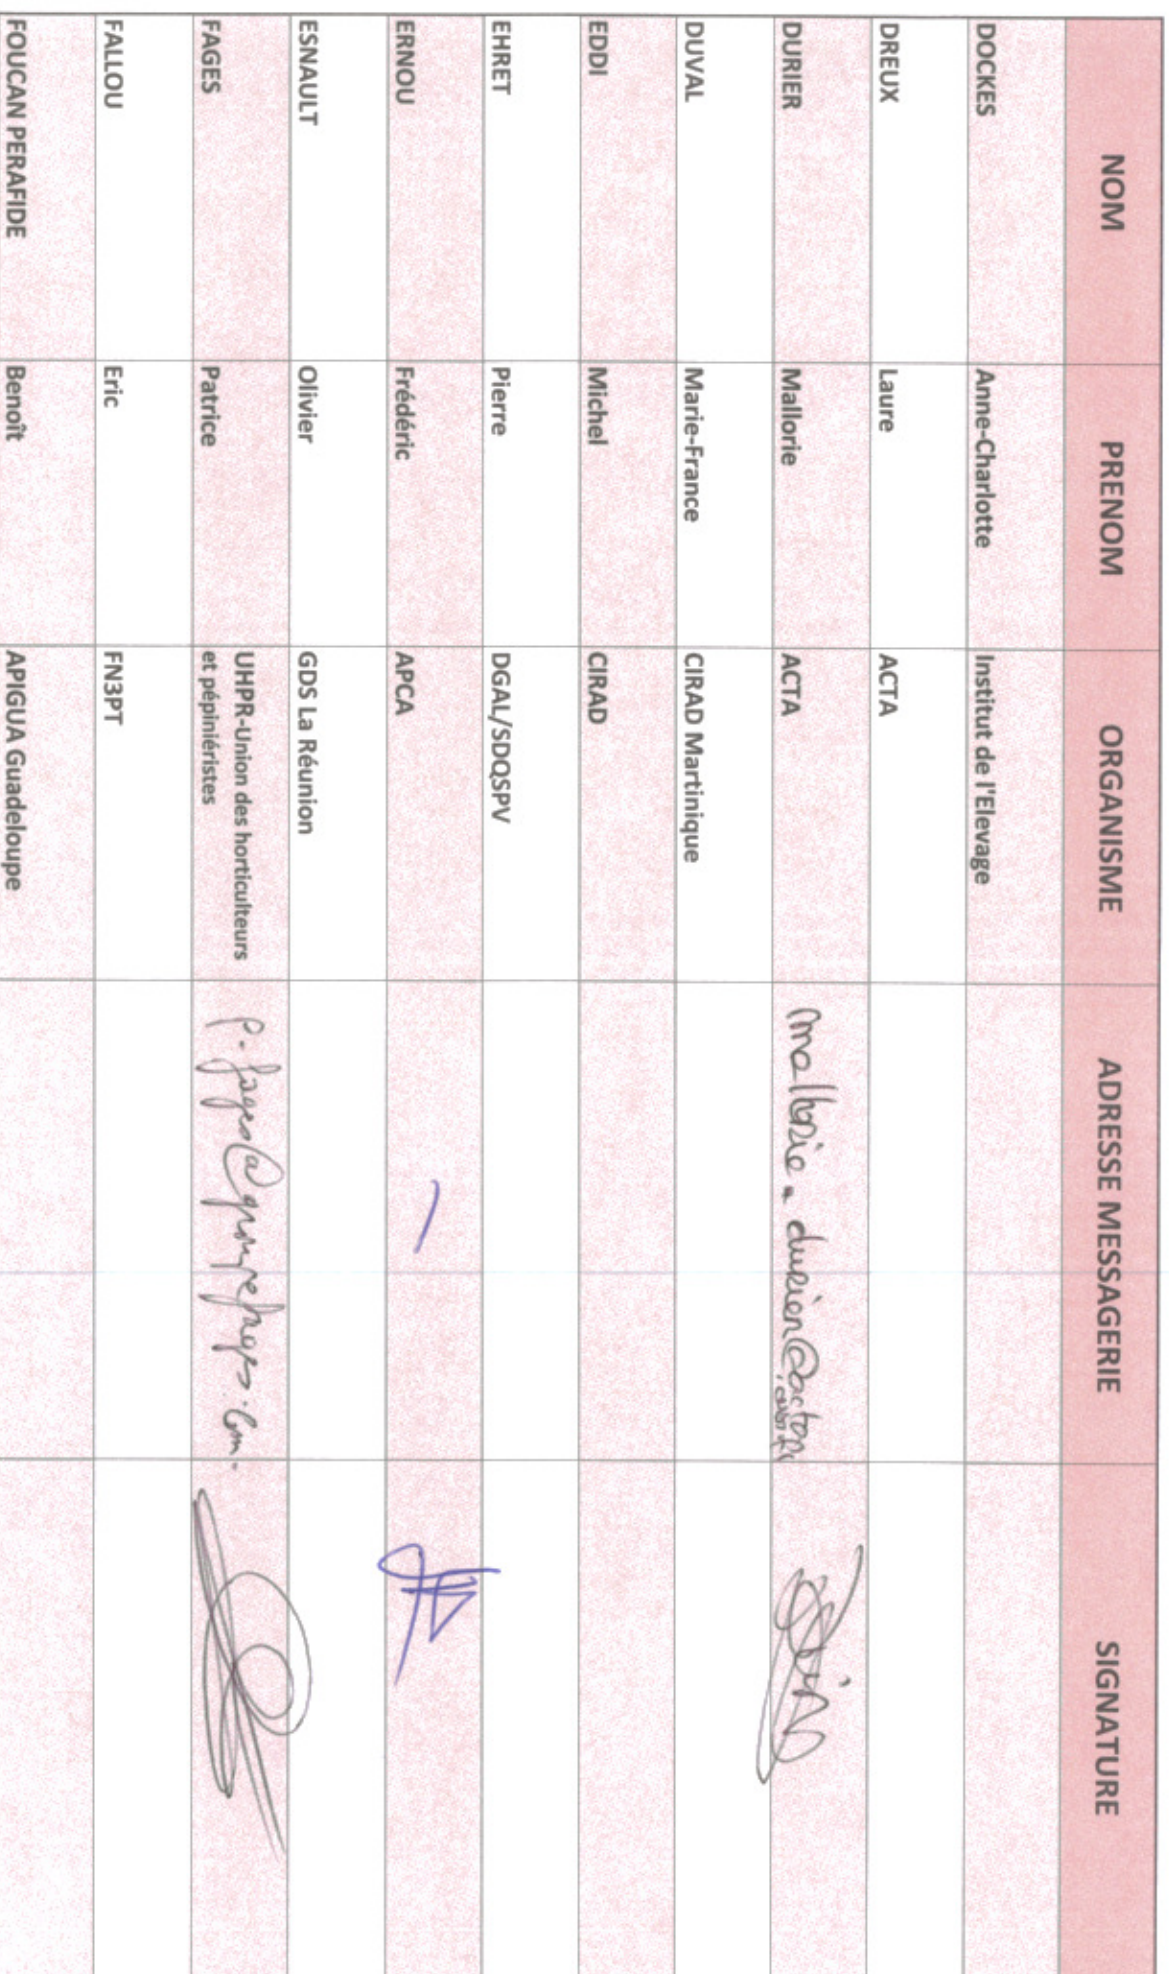 NOM PRENOM ORGANISME ADRESSE MESSAGERIE SIGNATURE
DOCKES Anne-Charlotte Institut de l'Elevage
DREUX Laure ACTA
DURIER Mallorie ACTA mallorie.durier@acta.
DUVAL Marie-France CIRAD Martinique
EDDI Michel CIRAD
EHRET Pierre DGAL/SDQSPV
ERNOU Frédéric APCA
ESNAULT Olivier GDS La Réunion
FAGES Patrice UHPR-Union des horticulteurs
et pépiniéristes p.fages@groupefages.com.
FALLOU Eric FN3PT
FOUCAN PERAFIDE Benoît APIGUA Guadeloupe